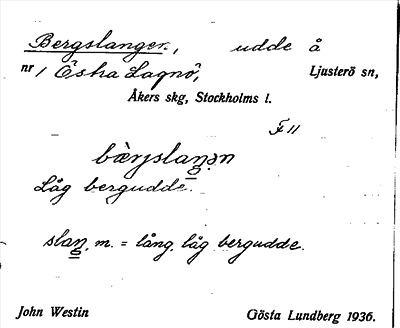 Bergslangen., udde å
nr 1 Ösha Lagnö, Ljusterö sn,
Åkers skg, Stockholms l.
F 11
bæ̀rjslaŋən
Låg bergudde.
slaŋ, m. = lång, låg bergudde.
John Westin Gösta Lundberg 1936.